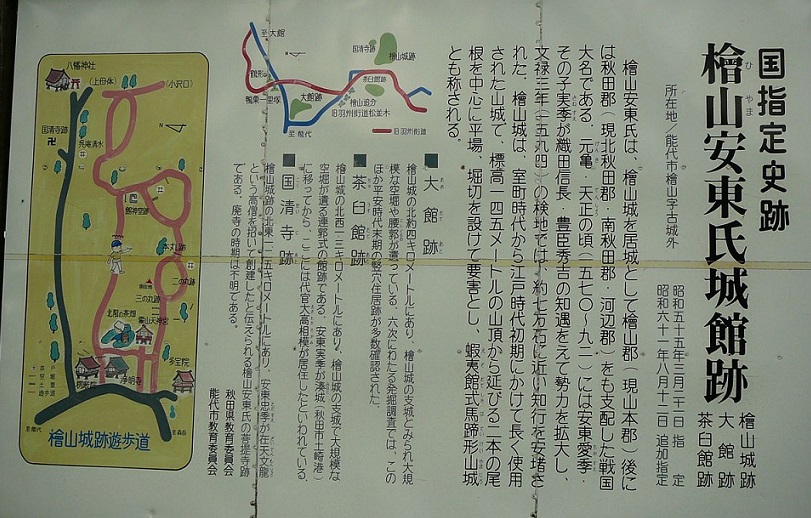 国指定史跡
檜山安東氏城館跡
ひ やま
檜山城跡
大館跡
茶臼館跡
所在地／能代市檜山字古城外
昭和五十五年三月二十一日 指定
昭和六十一年八月十二日 追加指定
檜山安東氏は、檜山城を居城として檜山郡（現山本郡）後に
は秋田郡（現北秋田郡・南秋田郡・河辺郡）をも支配した戦国
大名である。元亀・天正の頃（一五七〇〜九二）には安東愛季・
その子実季が織田信長・豊臣秀吉の知遇をえて勢力を拡大し、
文禄三年（一五九四）の検地では、約七万石に近い知行を安堵さ
れた。檜山城は、室町時代から江戸時代初期にかけて長く使用
された山城で、標高一四五メートルの山頂から延びる二本の尾
根を中心に平場、堀切を設けて要害とし、蝦夷館式馬蹄形山城
とも称される。
■大館跡
檜山城の北約四キロメートルにあり、檜山城の支城とみられ大規
模な空堀や腰郭が遺っている。六次にわたる発掘調査では、この
ほか平安時代末期の竪穴住居跡が多数確認された。
■茶臼館跡
檜山城の北西一・三キロメートルにあり、檜山城の支城で大規模な
空堀が遺る連郭式の館跡である。安東実季が湊城（秋田市土崎港）
に移ってから、ここには代官大高相模が居住したといわれている。
■国清寺跡
檜山城跡の北東一・五キロメートルにあり、安東忠季が在天文龍
という高僧を招いて創建したと伝えられる檜山安東氏の菩提寺跡
である。廃寺の時期は不明である。
秋田県教育委員会
能代市教育委員会
至大館
国清寺跡
檜山城跡
鶴形
茶臼館跡
大館跡
檜山追分
鴨巣一里塚
旧羽州街道松並木
至能代
旧羽州街道
八幡神社
（上母体）
（小沢口）
国清寺跡
館神空跡
本丸跡
二の丸跡
三の丸跡
北限の茶畑
霧山天神宮
多宝院
楞厳院
浄明寺
檜山城跡遊歩道